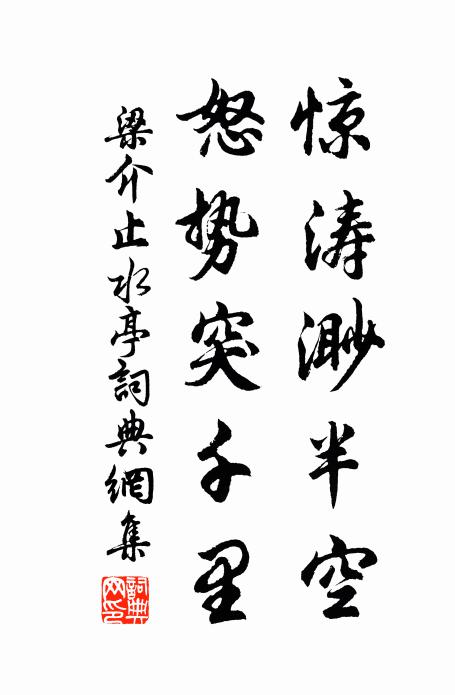 惊涛渺半空
怒势突千里
梁介止水亭詞典網集
詞典網印